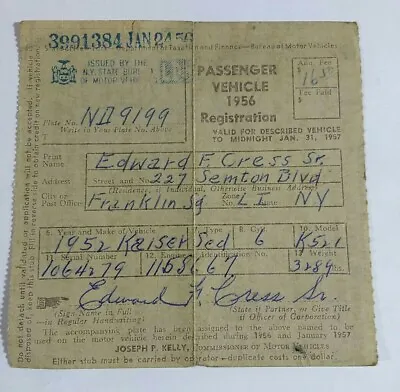 3991384 JAN 24 56
Taxation and Finance — Bureau of Motor Vehicles
ISSUED BY THE
N.Y. STATE BUREAU
OF MOTOR VEH.
PASSENGER
VEHICLE
1956
Registration
Amt. Fee
Fee Paid
VALID FOR DESCRIBED VEHICLE
TO MIDNIGHT JAN. 31, 1957
Plate No. 9199
Write in Your Plate No. Above
Print Name Edward F. Cress Sr.
Address Street and No. 227 Semton Blvd
(Residence, if Individual, Otherwise Business Address)
City or Post Office Franklin Sq Zone L I NY
6. Year and Make of Vehicle 8. Cyl. 10. Model
1952 Kaiser Sed 6 K521
11. Serial Number 12. Engine or Identification No. 13. Weight
1064279 3289
Edward F Cress Sr.
(Sign Name in Full in Regular Handwriting) (State if Partner, or Give Title if Officer of Corporation)
The accompanying plate has been assigned to the above named to be
used on the motor vehicle herein described during 1956 and January 1957
JOSEPH P. KELLY, Commissioner of Motor Vehicles
Either stub must be carried by operator - duplicate costs one dollar.